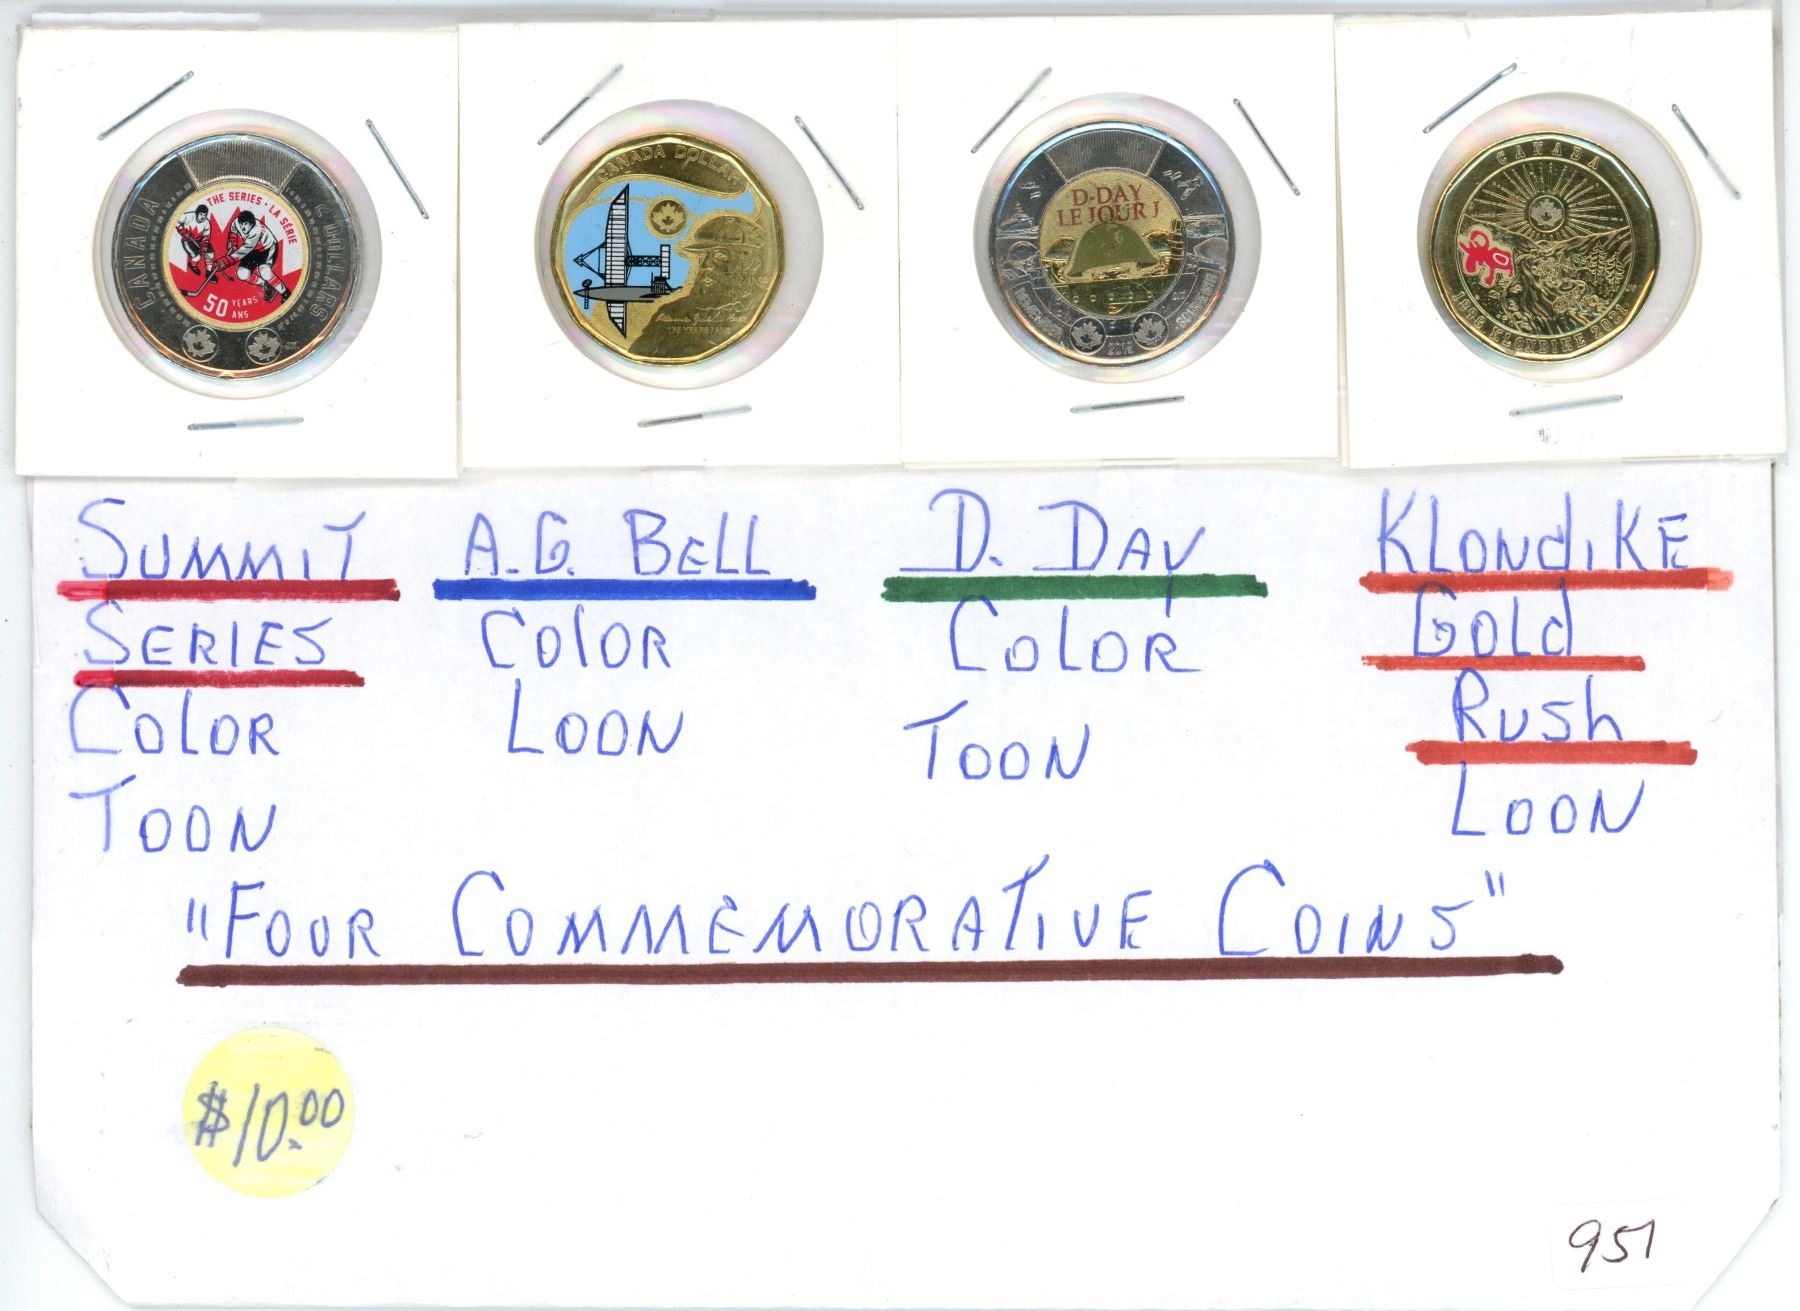 CANADA 2 DOLLARS
THE SERIES • LA SÉRIE
50 YEARS
ANS
CANADA DOLLAR
175 YEARS / ANS
D-DAY
LE JOUR J
REMEMBER
SOUVENIR
2019
CANADA
1896 KLONDIKE 2021
SUMMIT A.G. BELL D. DAY KLONDIKE
SERIES COLOR COLOR GOLD
COLOR LOON TOON RUSH
TOON LOON
"FOUR COMMEMORATIVE COINS"
$10.00
951